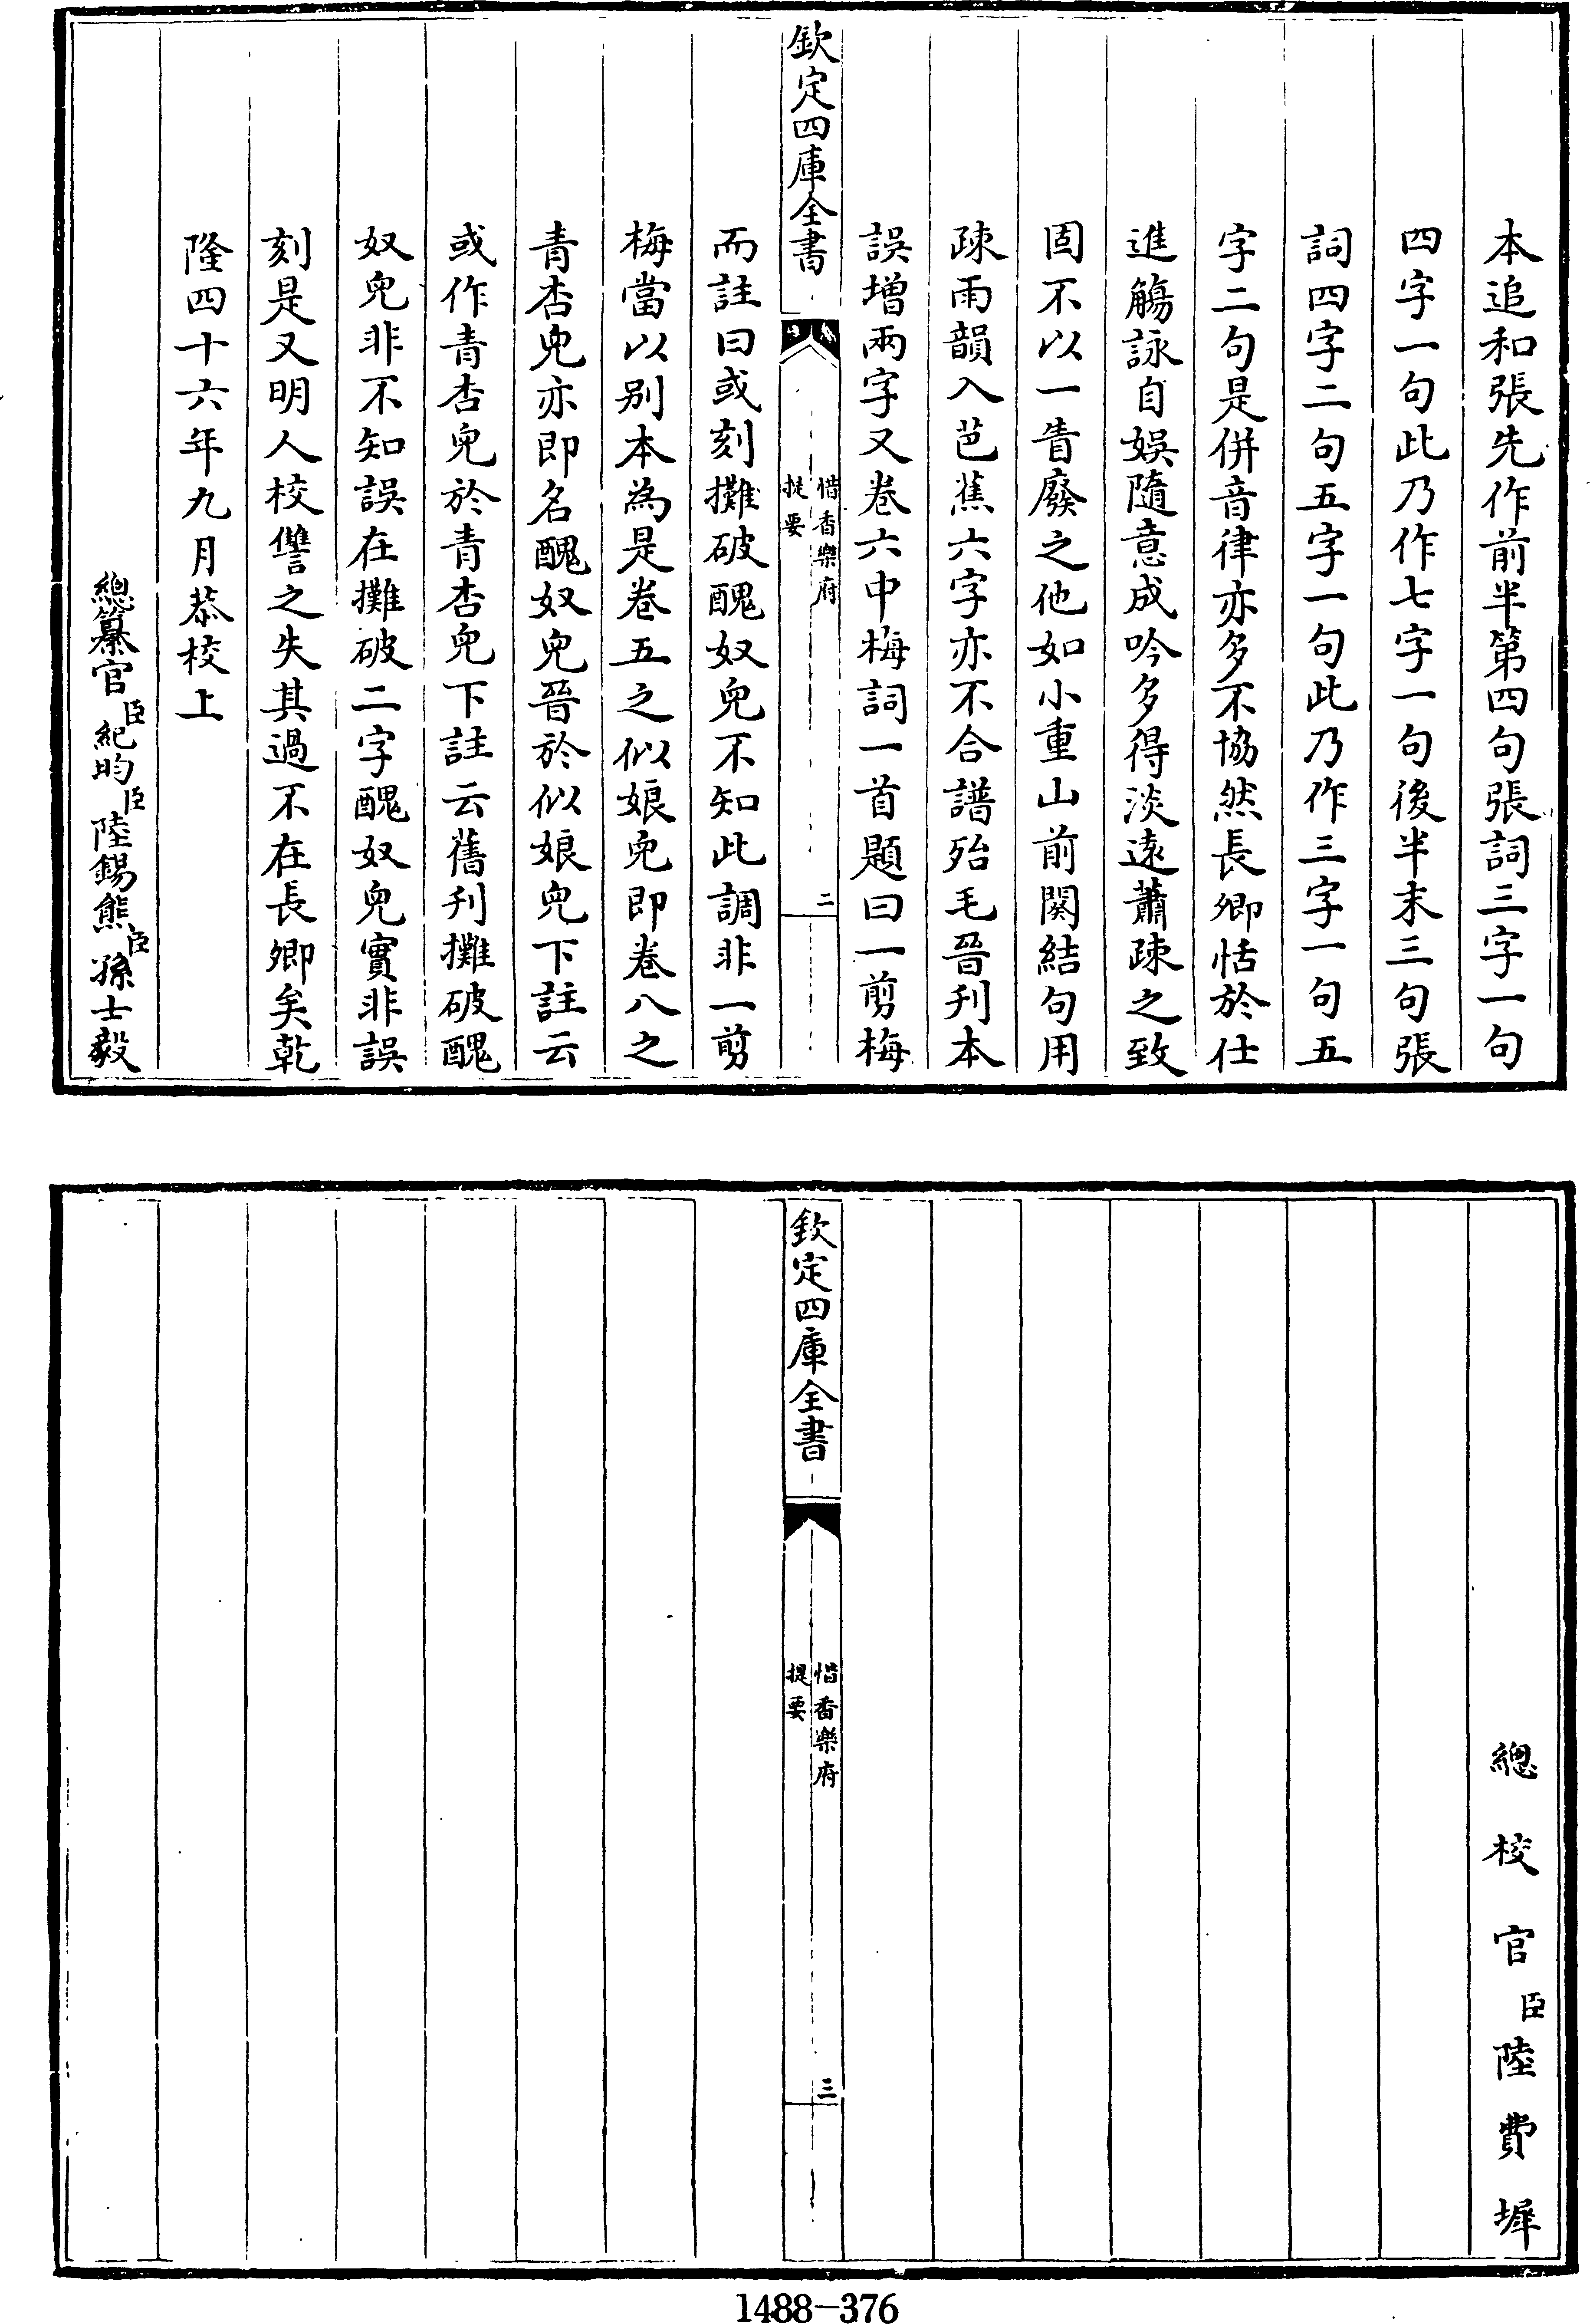 本追和張先作前半第四句張詞三字一句
四字一句此乃作七字一句後半末三句張
詞四字二句五字一句此乃作三字一句五
字二句是併音律亦多不協然長卿恬於仕
進觴詠自娛隨意成吟多得淡遠蕭疎之致
固不以一眚廢之他如小重山前闋結句用
疎雨韻入芭蕉六字亦不合譜殆毛晉刋本
誤增兩字又卷六中梅詞一首題曰一剪梅
欽定四庫全書
惜香樂府
提要
二
而註曰或刻攤破醜奴兒不知此調非一剪
梅當以别本為是卷五之似娘兒即卷八之
青杏兒亦即名醜奴兒晉於似娘兒下註云
或作青杏兒於青杏兒下註云舊刋攤破醜
奴兒非不知誤在攤破二字醜奴兒實非誤
刻是又明人校讐之失其過不在長卿矣乾
隆四十六年九月恭校上
總纂官臣紀昀臣陸錫熊臣孫士毅
總校官臣陸費墀
欽定四庫全書
惜香樂府
提要
三
1488-376